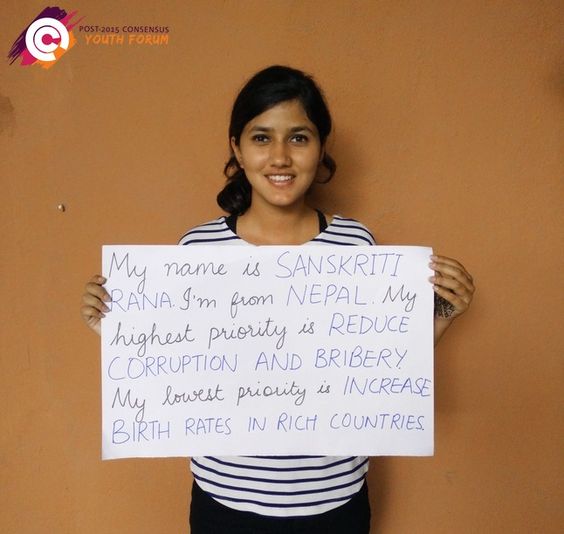 POST-2015 CONSENSUS
YOUTH FORUM
My name is SANSKRITI
RANA. I'm from NEPAL. My
highest priority is REDUCE
CORRUPTION AND BRIBERY.
My lowest priority is INCREASE
BIRTH RATES IN RICH COUNTRIES.